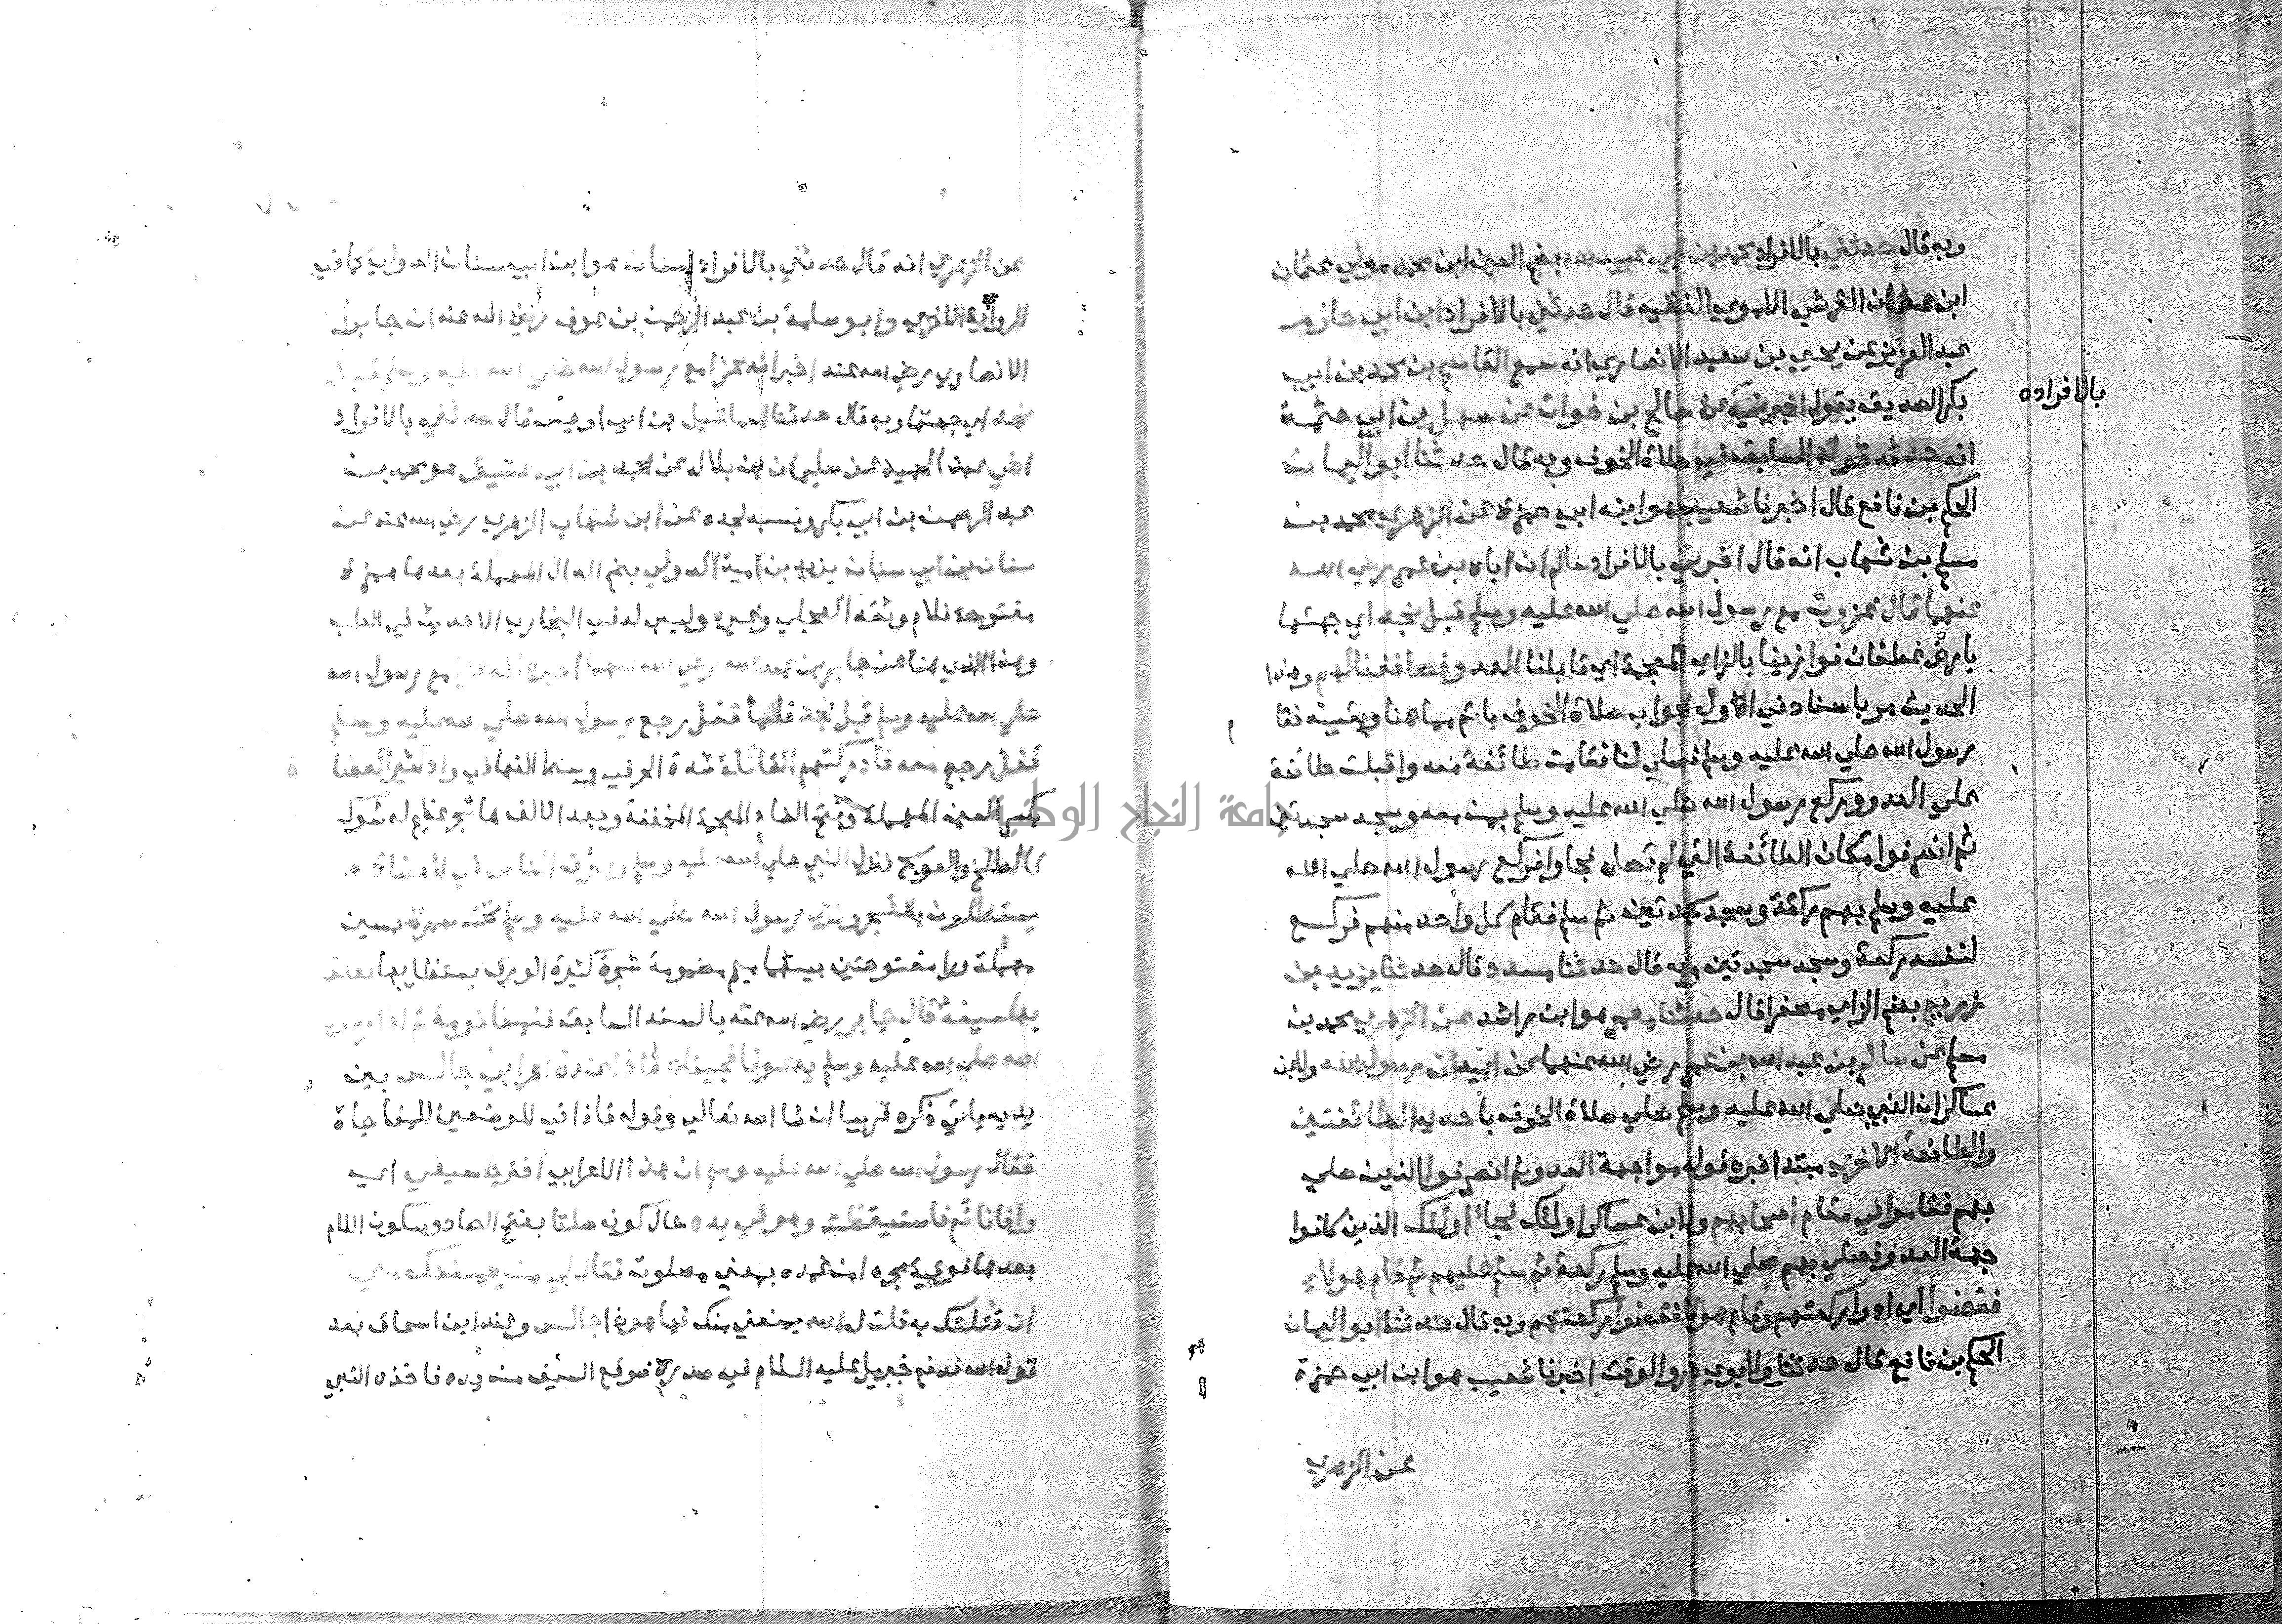 وبه قال حدثني بالافراد محمد بن ابي عبيد الله بضم العين ابن محمد مولي عثمان
ابن عفان القرشي الاموي الفقيه قال حدثني بالافراد ابن ابي حازم
عبد العزيز عن يحيي بن سعيد الانصاري انه سمع القاسم بن محمد بن ابي
بكر الصديق يقول اخبرني عن صالح بن خوات عن سهل بن ابي حثمة
بالافراده
انه حدثه قوله السابق في صلاة الخوف وبه قال حدثنا ابو اليمان
الحكم بن نافع قال اخبرنا شعيب هو ابن ابي حمزة عن الزهري محمد بن
مسلم بن شهاب انه قال اخبرني بالافراد سالم ان اباه بن عمر رضي الله
عنهما قال غزوت مع رسول الله صلي الله عليه وسلم قبل نجد اي جهتها
بارض غطفان فوازينا بالزاي المعجمة اي قابلنا العدو فصاففنا لهم وهذا
الحديث مر باسناده في اول ابواب صلاة الخوف باتم مما هنا وبقيته فقا
رسول الله صلي الله عليه وسلم فصلي لنا فقامت طائفة معه واقبلت طائفة
علي العدو وركع رسول الله صلي الله عليه وسلم بمن معه وسجد سجدتين
ثم انصرفوا مكان الطائفة التي لم تصل فجاوا فركع رسول الله صلي الله
عليه وسلم بهم ركعة وسجد سجدتين ثم سلم فقام كل واحد منهم فركع
لنفسه ركعة وسجد سجدتين وبه قال حدثنا مسدد قال حدثنا يزيد بن
زريع بضم الزاي مصغرا قال حدثنا معمر هو ابن راشد عن الزهري محمد بن
مسلم عن سالم بن عبد الله بن عمر رضي الله عنهما عن ابيه ان رسول الله ولابن
عساكر ان النبي صلي الله عليه وسلم صلي صلاة الخوف باحدي الطائفتين
والطائفة الاخري مبتدا خبره قوله مواجهة العدو ثم انصرفوا الذين صلي
بهم فقاموا في مقام اصحابهم ولابن عساكر اولئك فجا اولئك الذين كانوا
جهة العدو فصلي بهم صلي الله عليه وسلم ركعة ثم سلم عليهم ثم قام هولاء
فقضوا اي ادوا ركعتهم وقام هولا فقضوا ركعتهم وبه قال حدثنا ابو اليمان
الحكم بن نافع قال حدثنا ولابوي ذر والوقت اخبرنا شعيب هو ابن ابي حمزة
عن الزهري
عن الزهري انه قال حدثني بالافراد سنان هو ابن ابي سنان الدولي كما في
الرواية الاخري وابو سلمة بن عبد الرحمن بن عوف رضي الله عنه ان جابرا
الانصاري رضي الله عنه اخبر انه غزا مع رسول الله صلي الله عليه وسلم قبل
نجد اي جهتها وبه قال حدثنا اسماعيل بن ابي اويس قال حدثني بالافراد
اخي عبد الحميد عن سليمان بن بلال عن محمد بن ابي عتيق هو محمد بن
عبد الرحمن بن ابي بكر ونسبه لجده عن ابن شهاب الزهري رضي الله عنه عن
سنان بن ابي سنان يزيد بن امية الدولي بضم الدال المهملة بعدها همزة
مفتوحة فلام وثقه العجلي وغيره وليس له في البخاري الا حديث في الطب
وهذا الذي هنا عن جابر بن عبد الله رضي الله عنهما اخبره انه غزا مع رسول الله
صلي الله عليه وسلم قبل نجد فلما قفل رجع رسول الله صلي الله عليه وسلم
قفل رجع معه فادركتهم القائلة شدة الحر في وسط النهار في واد كثير العضا
بكسر العين المهملة وفتح الضاد المعجمة المخففة وبعد الالف ها شجر عظيم له شوك
كالطلح والعوسج فنزل النبي صلي الله عليه وسلم وتفرق الناس في العضاه
يستظلون بالشجر ونزل رسول الله صلي الله عليه وسلم تحت سمرة بسين
مهملة ورا مفتوحتين بينهما ميم مضمومة شجرة كثيرة الورق يستظل بها فعلق
بها سيفه قال جابر رضي الله عنه بالسند السابق فنمنا نومة فاذا رسول
الله صلي الله عليه وسلم يدعونا فجيناه فاذا عنده اعرابي جالس بين
يديه ياتي ذكره قريبا ان شا الله تعالي وقوله فاذا في الموضعين للمفاجاة
فقال رسول الله صلي الله عليه وسلم ان هذا الاعرابي اخترط سيفي اي
وانا نائم فاستيقظت وهو في يده حال كونه صلتا بفتح الصاد وسكون اللام
بعدها فوقية مجردا من غمده بمعني مصلوت فقال لي من يمنعك مني
ان قتلتك به قلت له الله يمنعني منك فها هو ذا جالس وعند ابن اسحاق بعد
قوله الله فدفع جبريل عليه السلام في صدره فوقع السيف من يده فاخذه النبي
جامعة النجاح الوطنية